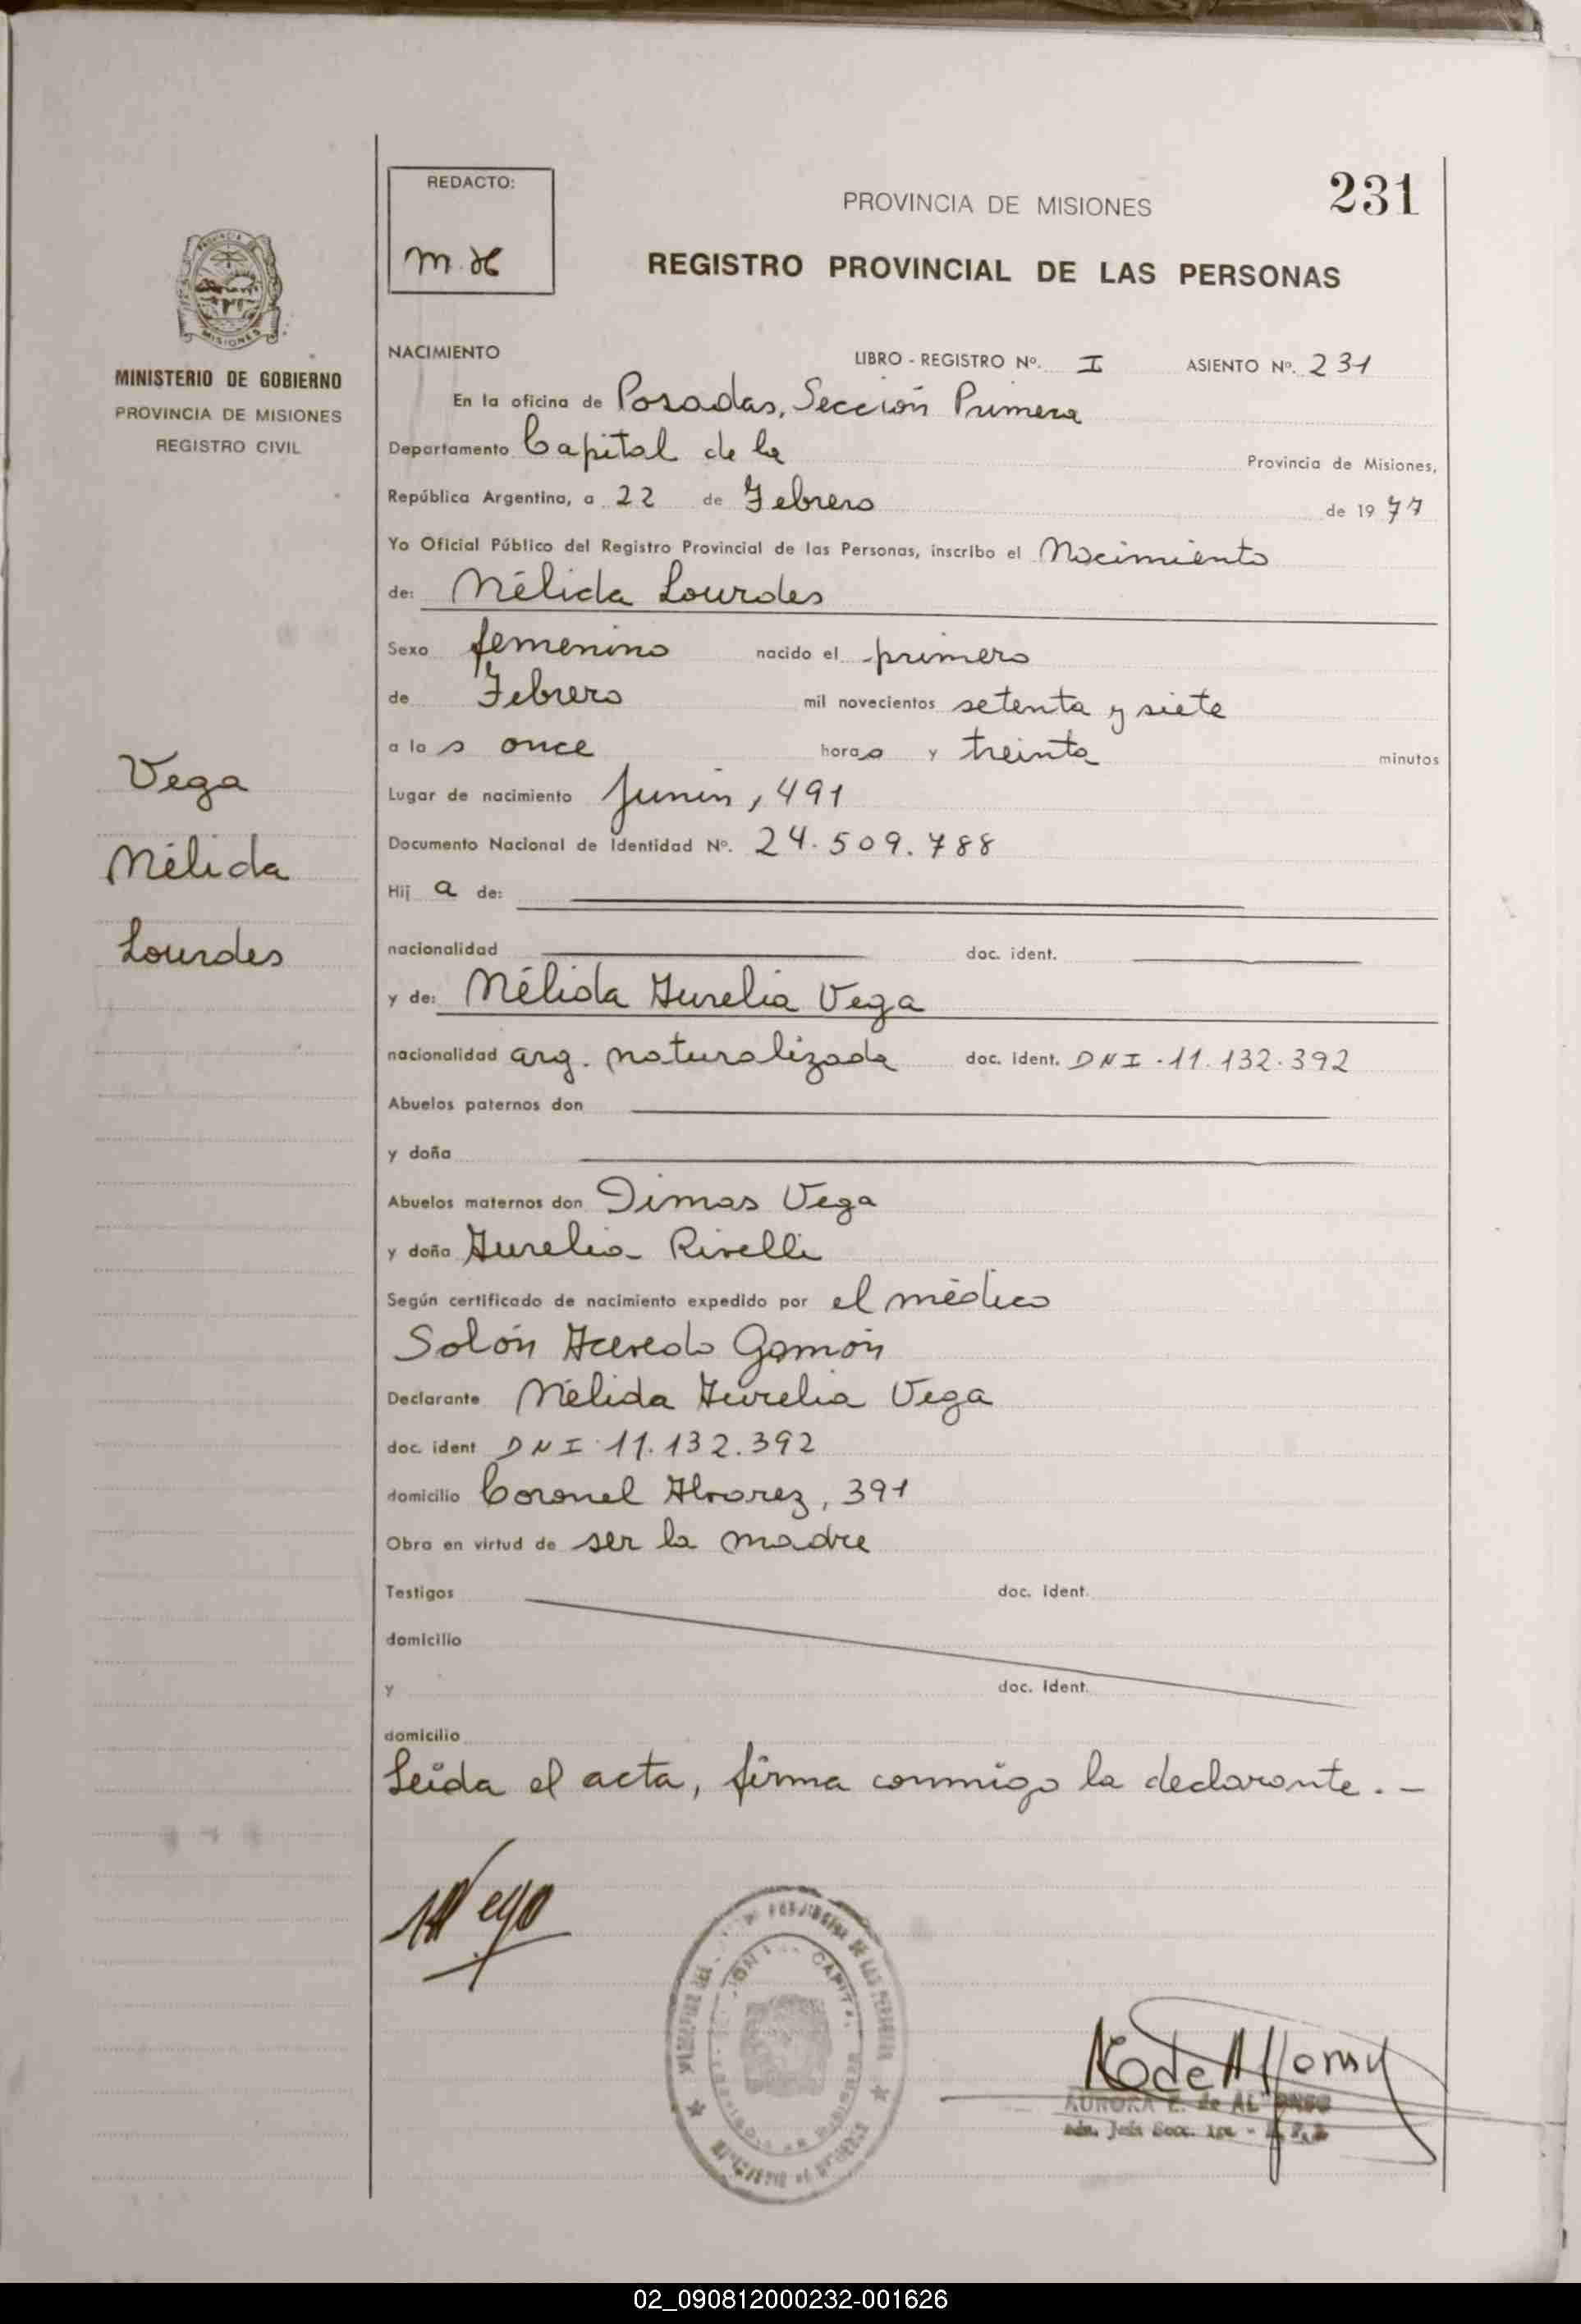 REDACTO:
m.
PROVINCIA DE MISIONES
231
REGISTRO PROVINCIAL DE LAS PERSONAS
MISIONES
MINISTERIO DE GOBIERNO
PROVINCIA DE MISIONES
REGISTRO CIVIL
NACIMIENTO LIBRO - REGISTRO Nº. I ASIENTO Nº. 231
En la oficina de Posadas, Sección Primera
Departamento Capital de la Provincia de Misiones,
República Argentina, a 22 de Febrero de 1977
Yo Oficial Público del Registro Provincial de las Personas, inscribo el Nacimiento
de: Nélida Lourdes
Sexo femenino nacido el primero
de Febrero mil novecientos setenta y siete
a las once horas y treinta minutos
Vega
Nélida
Lourdes
Lugar de nacimiento Junín, 491
Documento Nacional de Identidad Nº. 24.509.788
Hija de:
nacionalidad doc. ident.
y de: Nélida Aurelia Vega
nacionalidad arg. naturalizada doc. ident. DNI. 11.132.392
Abuelos paternos don
y doña
Abuelos maternos don Dimas Vega
y doña Aurelia Rivelli
Según certificado de nacimiento expedido por el médico
Solón Acevedo Gamón
Declarante Nélida Aurelia Vega
doc. ident DNI. 11.132.392
domicilio Coronel Alvarez, 391
Obra en virtud de ser la madre
Testigos doc. ident.
domicilio
y doc. ident.
domicilio
Leida el acta, firma conmigo la declarante. -
AURORA E. de ALFONSO
02_090812000232-001626